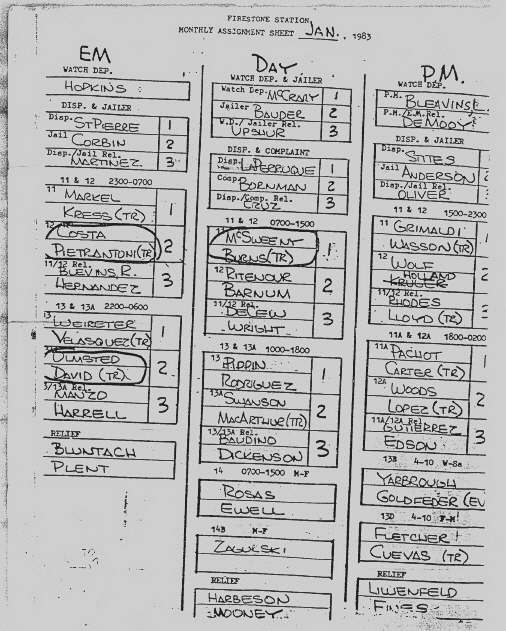 FIRESTONE STATION
MONTHLY ASSIGNMENT SHEET JAN., 1983
EM
WATCH DEP.
HOPKINS
DISP. & JAILER
Disp. ST PIERRE 1
Jail CORBIN 2
Disp./Jail Rel. MARTINEZ 3
11 & 12 2300-0700
11 MARKEL
KRESS (TR) 1
12 COSTA
PIETRANTONI (TR) 2
11/12 Rel.
BLEVINS, R.
HERNANDEZ 3
13 & 13A 2200-0600
13 WEIRETER
VELASQUEZ (TR) 1
OLMSTED
DAVID (TR) 2
3/13A Rel.
MANZO
HARRELL 3
RELIEF
BLUNTACH
PLENT
DAY
WATCH DEP. & JAILER
Watch Dep. MCCRARY 1
Jailer BAUDER 2
W.D./ Jailer Rel.
UPSHUR 3
DISP. & COMPLAINT
Disp. LAPERRUQUE 1
Comp. BORNMAN 2
Disp./Comp. Rel.
CRUZ 3
11 & 12 0700-1500
MCSWEENY
BURNS (TR) 1
12 RITENOUR
BARNUM 2
11/12 Rel.
DECEW
WRIGHT 3
13 & 13A 1000-1800
13 PIPPIN
RODRIGUEZ 1
13A SWANSON
MACARTHUR (TR) 2
13/13A Rel.
BAUDINO
DICKENSON 3
14 0700-1500 M-F
ROSAS
EWELL
14B M-F
ZAGULSKI
RELIEF
HARBESON
MOONEY
P.M.
WATCH DEP.
P.M. BLEAVINS
P.M./E.M. Rel.
DEMOOY
DISP. & JAILER
Disp. SITTES
Jail ANDERSON 2
Disp./Jail Rel.
OLIVER 3
11 & 12 1500-2300
11 GRIMALDI
WASSON (TR) 1
12 WOLF
HOLLAND
KRULER 2
11/12 Rel.
RHODES
LLOYD (TR) 3
11A & 12A 1800-0200
11A PACHOT
CARTER (TR) 1
12A WOODS
LOPEZ (TR) 2
11A/12A Rel.
GUTIERREZ
EDSON 3
13B 4-10 W-Sa
YARBROUGH
GOLDFEDER (EV
13D 4-10 F-M
FLETCHER
CUEVAS (TR)
RELIEF
LILIENFELD
FINES